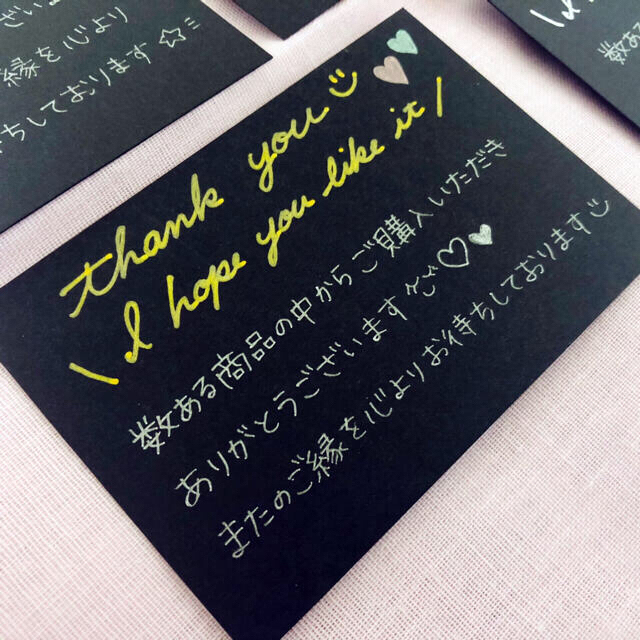 ざいま
縁を心より
ちしております☆
thank you
\ I hope you like it /
数ある商品の中からご購入いただき
ありがとうございます♡♥
またのご縁を心よりお待ちしております
数あ